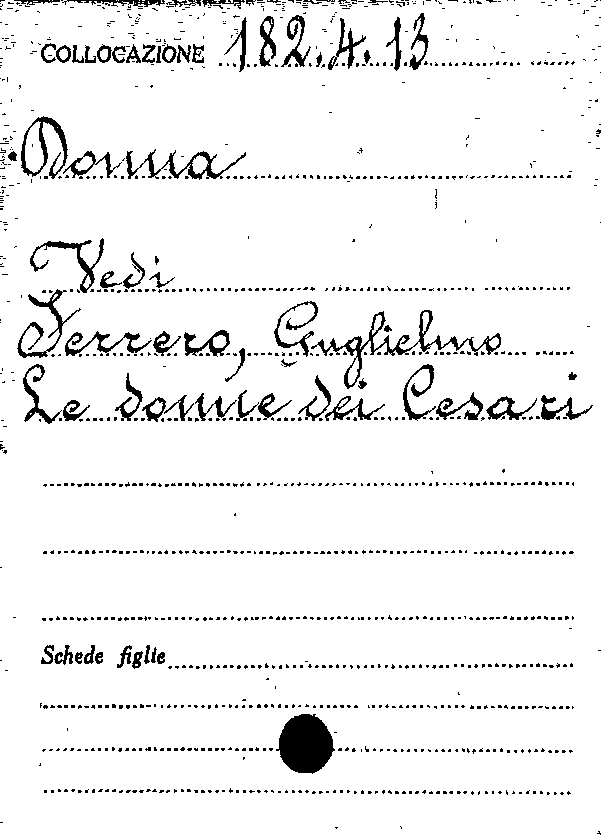 COLLOCAZIONE 182.4.13
Donna
Vedi
Ferrero, Guglielmo
Le donne dei Cesari
Schede figlie